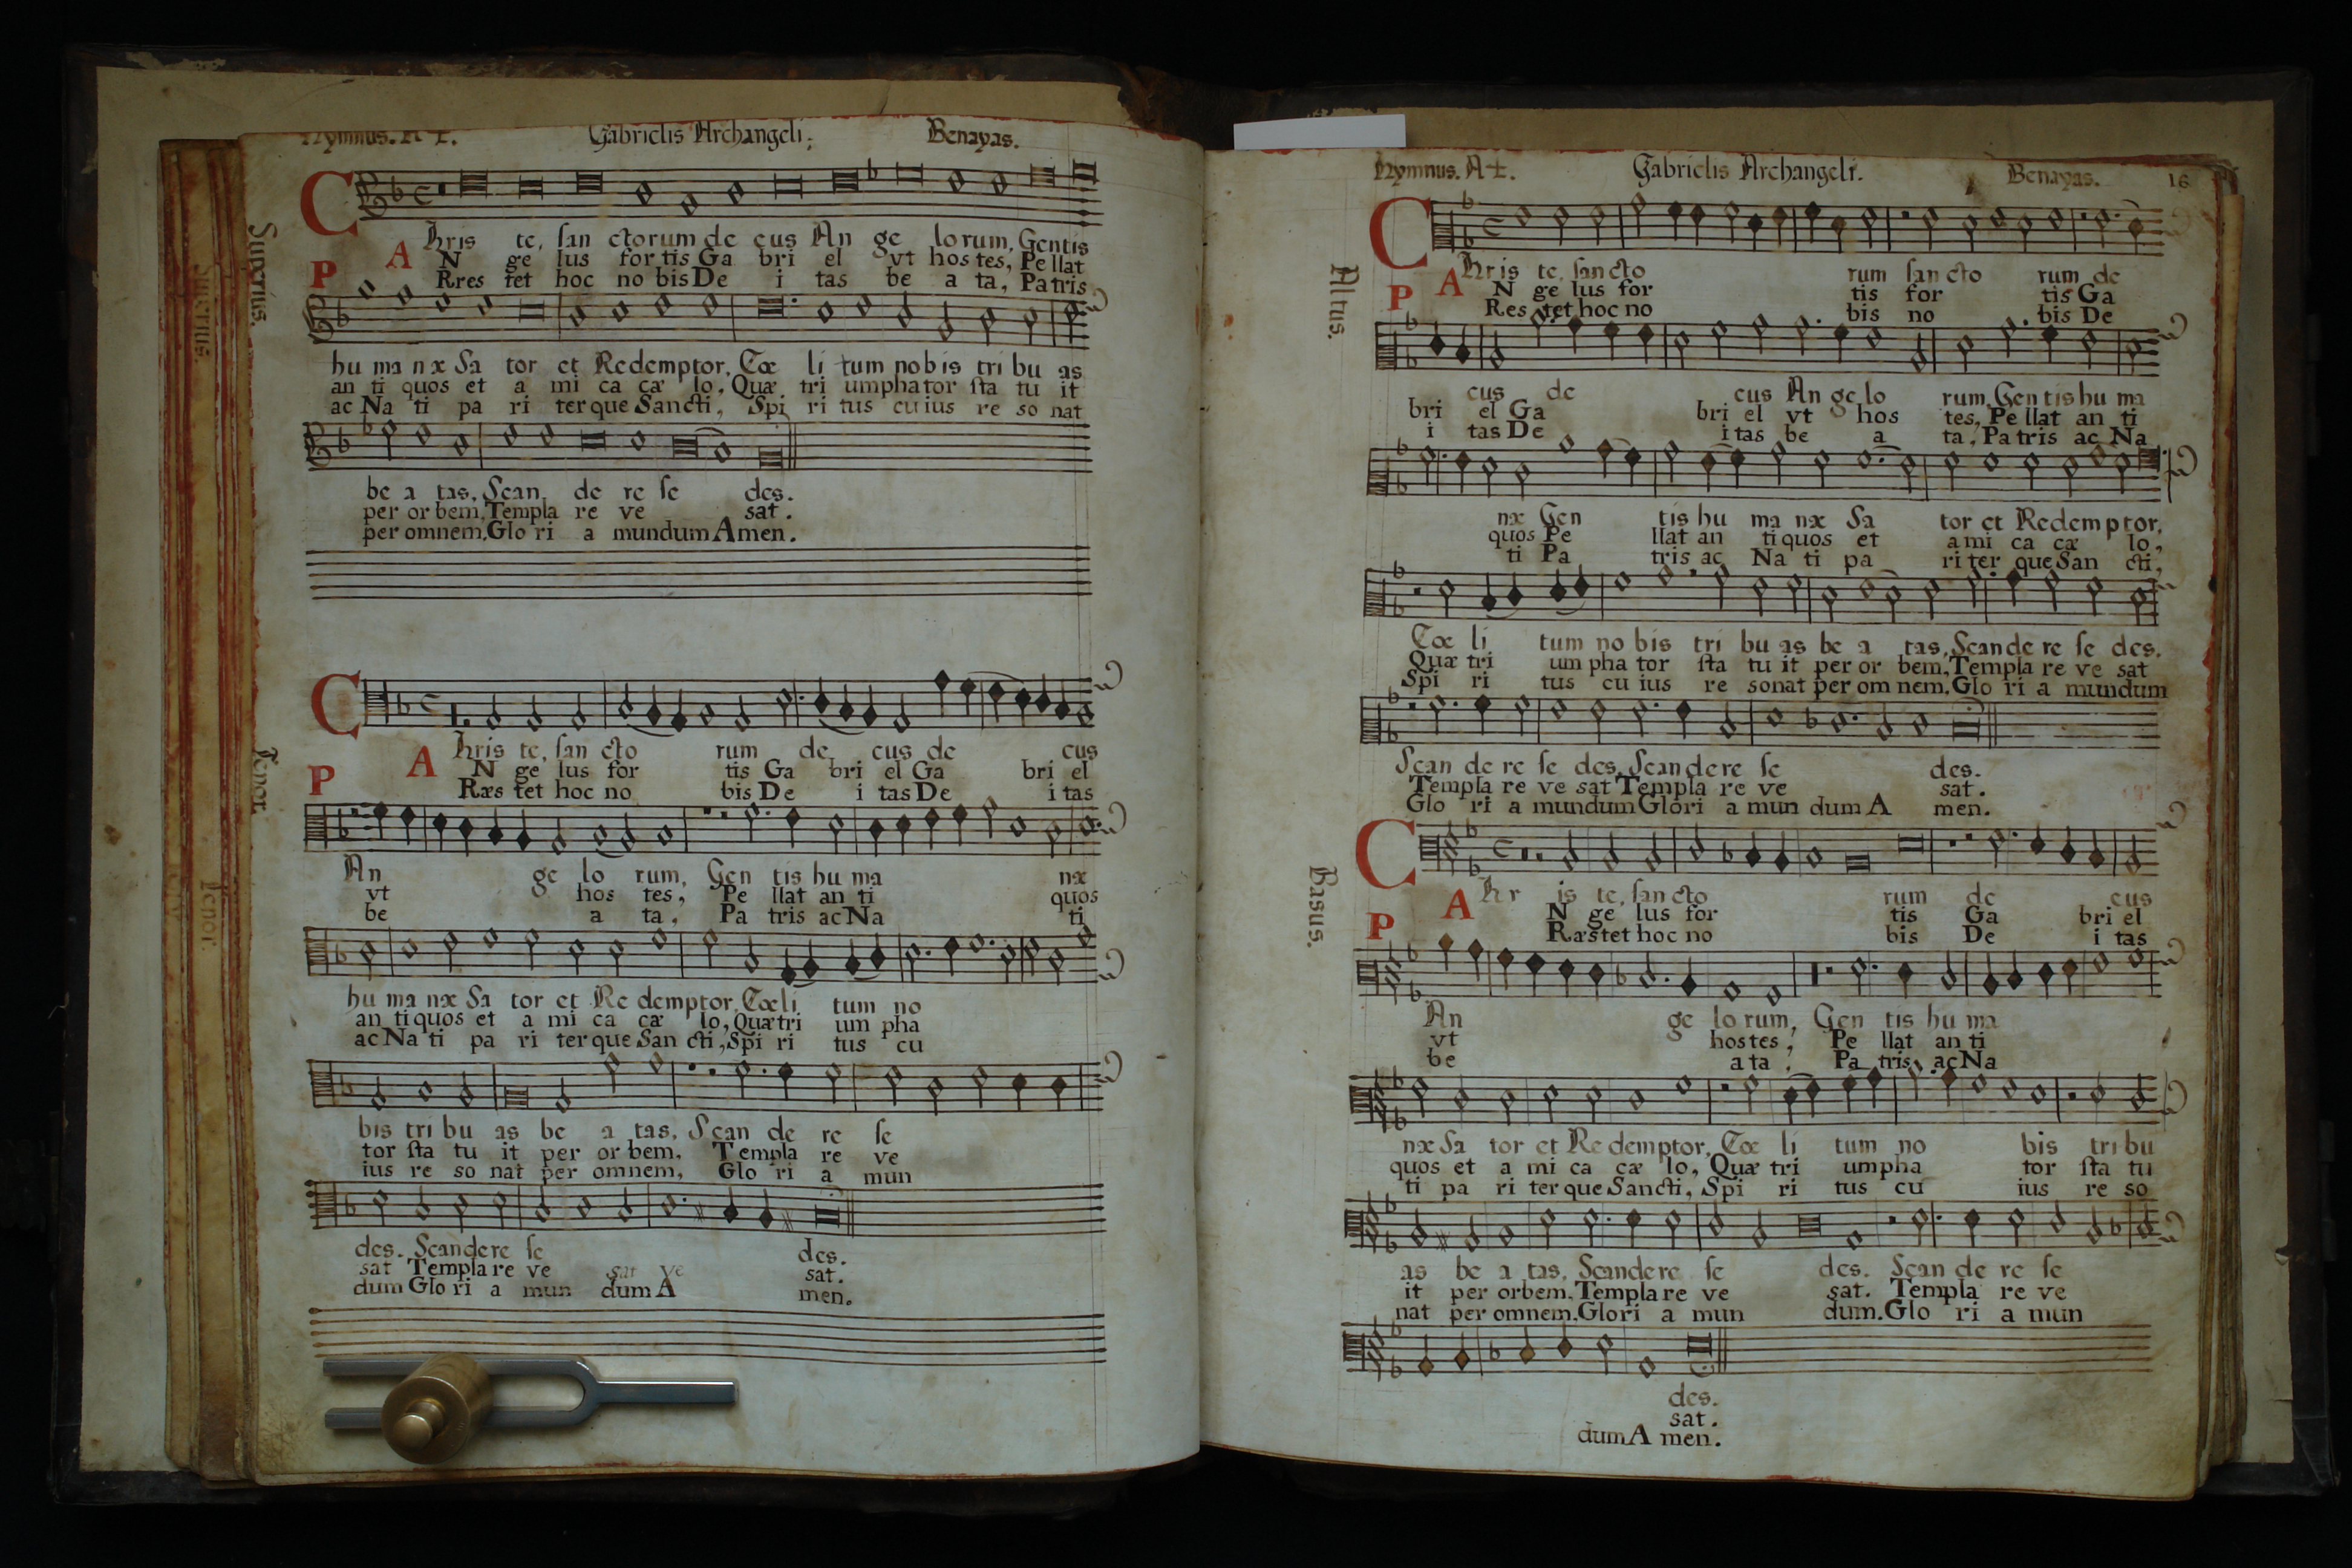 Hymnus. A 4. Gabrielis Archangeli. Benayas.
Superius.
CHris te, san ctorum de cus An ge lo rum, Gentis
AN ge lus for tis Ga bri el vt hos tes, Pe llat
PRres tet hoc no bis De i tas be a ta, Patris
hu ma næ Sa tor et Redemptor, Cœ li tum nobis tri bu as
an ti quos et a mi ca cæ lo, Quæ tri umpha tor sta tu it
ac Na ti pa ri ter que Sancti, Spi ri tus cu ius re so nat
be a tas, Scan de re se des.
per or bem, Templa re ve sat.
per omnem, Glo ri a mundum Amen.
Tenor.
CHris te, san cto rum de cus de cus
AN ge lus for tis Ga bri el Ga bri el
PRæs tet hoc no bis De i tas De i tas
An ge lo rum, Gen tis hu ma næ
vt hos tes, Pe llat an ti quos
be a ta, Pa tris ac Na ti
hu ma næ Sa tor et Re demptor, Cœ li tum no
an ti quos et a mi ca cæ lo, Quæ tri um pha
ac Na ti pa ri ter que San cti, Spi ri tus cu
bis tri bu as be a tas, Scan de re se
tor sta tu it per or bem, Templa re ve
ius re so nat per omnem, Glo ri a mun
des. Scandere se des.
sat Templa re ve sat ve sat.
dum Glo ri a mun dum A men.
Hymnus. A 4. Gabrielis Archangeli. Benayas. 16
Altus.
CHris te, san cto rum san cto rum de
AN ge lus for tis for tis Ga
PRes tet hoc no bis no bis De
cus de cus An ge lo rum, Gen tis hu ma
bri el Ga bri el vt hos tes, Pe llat an ti
i tas De i tas be a ta, Pa tris ac Na
næ Gen tis hu ma næ Sa tor et Redemptor,
quos Pe llat an ti quos et a mi ca cæ lo,
ti Pa tris ac Na ti pa ri ter que San cti,
Cœ li tum no bis tri bu as be a tas, Scande re se des.
Quæ tri um pha tor sta tu it per or bem, Templa re ve sat
Spi ri tus cu ius re sonat per om nem, Glo ri a mundum
Scan de re se des, Scandere se des.
Templa re ve sat Templa re ve sat.
Glo ri a mundum Glori a mun dum A men.
Basus.
CHr is te, san cto rum de cus
AN ge lus for tis Ga bri el
PRæs tet hoc no bis De i tas
An ge lo rum, Gen tis hu ma
vt hos tes, Pe llat an ti
be a ta, Pa tris, ac Na
næ Sa tor et Re demptor, Cœ li tum no bis tri bu
quos et a mi ca cæ lo, Quæ tri umpha tor sta tu
ti pa ri ter que Sancti, Spi ri tus cu ius re so
as be a tas, Scandere se des. Scan de re se
it per orbem, Templa re ve sat. Templa re ve
nat per omnem, Glori a mun dum. Glo ri a mun
des.
sat.
dum A men.